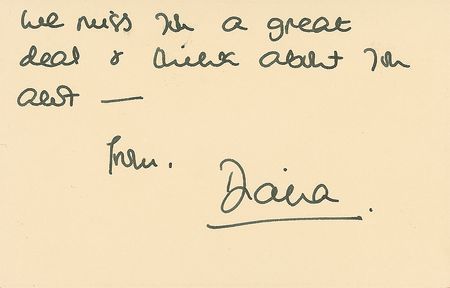 we miss you a great
deal & think about you
alot —
from.
Diana.